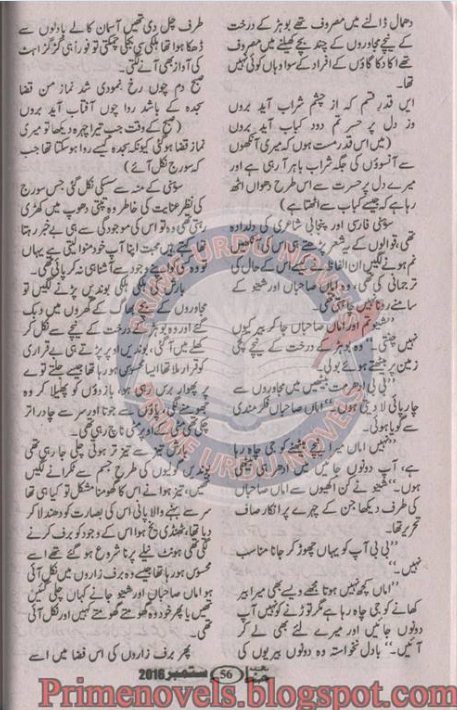 دھمال ڈالنے میں مصروف تھے بوہڑ کے درخت
کے نیچے مجاوروں کے چند بچے کھیلنے میں مصروف
تھے اکا دکا گاؤں کے افراد کے سوا وہاں کوئی نہیں
تھا۔
ایں قدر مستم کہ از چشم شراب آید بروں
وز دل پر حسرتم دود کباب آید بروں
(میں اس قدر مست ہوں کہ میری آنکھوں
سے آنسوؤں کی جگہ شراب باہر آ رہی ہے اور
میرے دل پر حسرت سے اس طرح دھواں اٹھ
رہا ہے کہ جیسے کباب سے اٹھتا ہے)
سوہنی فارسی اور پنجابی شاعری کی دلدادہ
تھی، قوالوں کے شعر پڑھتے ہی اس کی آنکھیں
نم ہونے لگیں ان الفاظ نے جیسے اس کے حال کی
ترجمانی کی تھی، وہ اماں صاحباں اور شینو کے
سامنے رونا نہیں چاہتی تھی۔
”شینو تم اور اماں صاحباں جا کر بیر کیوں
نہیں چنتی۔“ وہ بوہڑ کے درخت کے نیچے کچی
زمین پر بیٹھتے ہوئے بولی۔
”بی بی آپ ادھر مت بیٹھیں میں مجاوروں سے
چارپائی لا دیتی ہوں۔“ اماں صاحباں فکر مندی
سے گویا ہوئی۔
”نہیں اماں میرا نیچے بیٹھنے کو جی چاہ رہا
ہے، آپ دونوں جائیں میں ادھر ہی بیٹھی
ہوں۔“ شینو نے کن اکھیوں سے اماں صاحباں
کی طرف دیکھا جن کے چہرے پر انکار صاف
تحریر تھا۔
”بی بی آپ کو یہاں چھوڑ کر جانا مناسب
نہیں۔“
”اماں کچھ نہیں ہوتا مجھے ویسے بھی میرا بیر
کھانے کو جی چاہ رہا ہے مگر توڑنے کو نہیں آپ
دونوں جائیں اور میرے لئے بھی لے کر
آئیں۔“ بادل نخواستہ وہ دونوں بیریوں کی
طرف چل دی تھیں آسمان کالے بادلوں سے
ڈھکا ہوا تھا ہلکی سی بجلی چمکتی تو فوراً ہی گڑگڑاہٹ
کی آواز بھی آنے لگتی۔
صبح دم چوں رخ نمودی شد نماز من قضا
سجدہ کے باشد روا چوں آفتاب آید بروں
(صبح کے وقت جب تیرا چہرہ دیکھا تو میری
نماز قضا ہو گئی کیونکہ سجدہ کیسے روا ہو سکتا تھا جب
کہ سورج نکل آئے)
سوہنی کے منہ سے سسکی نکل گئی جس سورج
کی نظر عنایت کی خاطر وہ تپتی دھوپ میں کھڑی
رہتی تھی وہ تو اس کی موجودگی سے ہی بے خبر رہتا
تھا کہتے ہیں محبت اپنا آپ خود منوا لیتی ہے یہاں
تو وہ اسے اپنے وجود سے آشنا ہی نہ کر پائی تھی۔
بارش کی ہلکی ہلکی بوندیں پڑنے لگیں تو
مجاوروں کے بچے بھاگ کے گھروں میں دبک
گئے اور وہ بوہڑ کے درخت کے نیچے سے نکل کر
کھلے میں آ گئی، بوندیں اوپر پڑتے ہی بے قراری
کو قرار ملا تھا ایسا محسوس ہو رہا تھا جیسے جلتے توے
پر پھوار برس رہی ہو، بازوؤں کو پھیلا کر وہ
جھومنے لگی، پاؤں سے جوتا اور سر سے چادر اتر
چکی تھی اور وہ مستی میں ناچ رہی تھی۔
بارش تیز سے تیز تر ہوتی چلی جا رہی تھی
بوندیں گولیوں کی طرح جسم سے ٹکرانے لگیں
تھیں، تیز ہوا نے اس کا گھومنا مشکل تو کیا ہی تھا
سر سے بہنے والا پانی اس کی بصارت کو دھندلا کر
دیا تھا، ٹھنڈی یخ ہوا اس کے وجود کو برف کرنے
لگی تھی ہونٹ نیلے پڑنا شروع ہو گئے تھے اسے
محسوس ہو رہا تھا جیسے وہ برف زاروں میں نکل آئی
ہو اماں صاحباں اور شینو جانے کہاں چلی گئیں
تھیں یا پھر خود وہ گھومتے گھومتے کہیں اور نکل آئی
تھی۔
پھر برف زاروں کی اس فضا میں اسے
حنا 56 ستمبر 2016
PRIME URDU NOVELS
Primenovels.blogspot.com